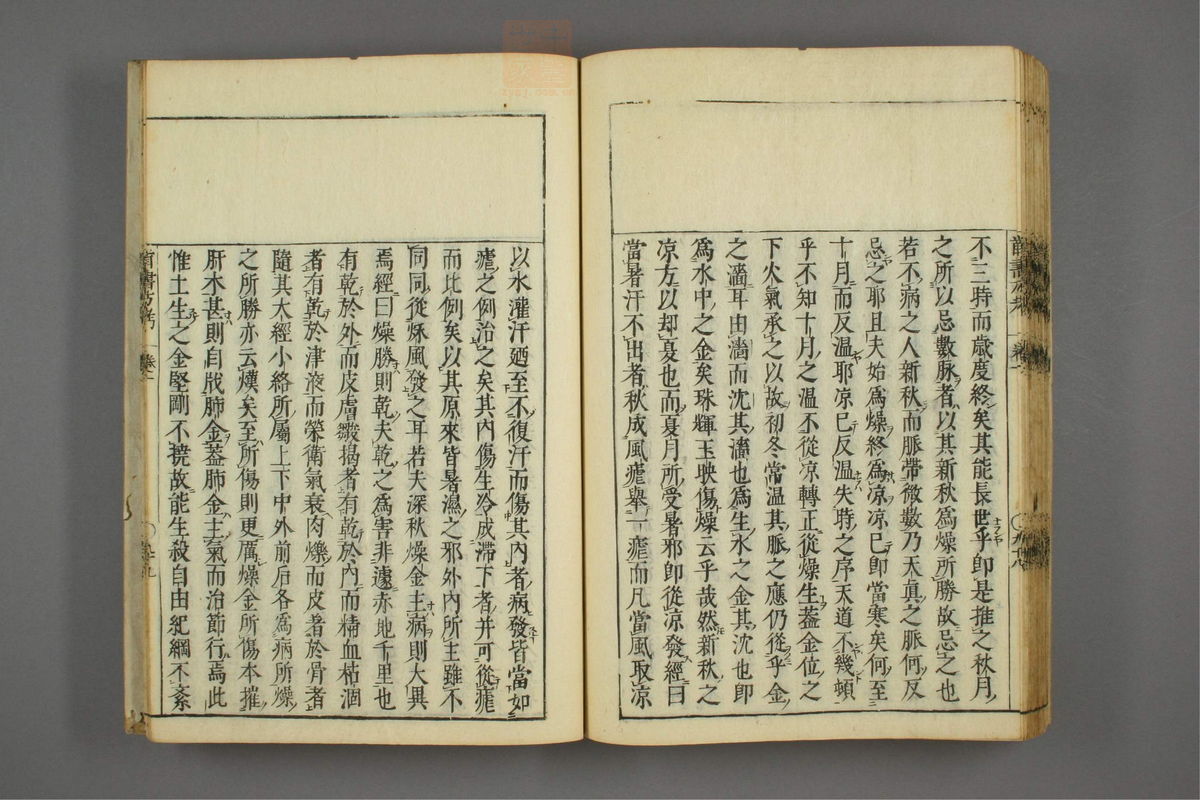 不三時而歳度終矣其能長世乎即是推之秋月
之所以忌數脉者以其新秋為燥所勝故忌之也
若不病之人新秋而脈帶微數乃天真之脈何反
忌之耶且夫始為燥終為凉凉巳即當寒矣何至
十月而反温耶凉巳反温失時之序天道不幾頓
乎不知十月之温不從凉轉正從燥生葢金位之
下火氣承之以故初冬常温其脈之應仍從乎金
之濇耳由濇而沈其濇也為生水之金其沈也即
為水中之金矣珠輝玉映傷燥云乎哉然新秋之
凉方以却夏也而夏月所受暑邪即從凉發經曰
當暑汗不出者秋成風瘧舉一瘧而凡當風取凉
以水灌汗廼至不復汗而傷其內者病發皆當如
瘧之例治之矣其內傷生冷成滯下者并可從瘧
而比例矣以其原來皆暑濕之邪外內所主雖不
同同從秌風發之耳若夫深秋燥金主病則大異
焉經曰燥勝則乾夫乾之為害非遽赤地千里也
有乾於外而皮膚皺揭者有乾於內而精血枯涸
者有乾於津液而榮衛氣衰肉爍而皮著於骨者
隨其大經小絡所屬上下中外前后各為病所燥
之所勝亦云熯矣至所傷則更厲燥金所傷本摧
肝木甚則自戕肺金葢肺金主氣而治節行焉此
惟土生之金堅剛不撓故能生殺自由紀綱不紊